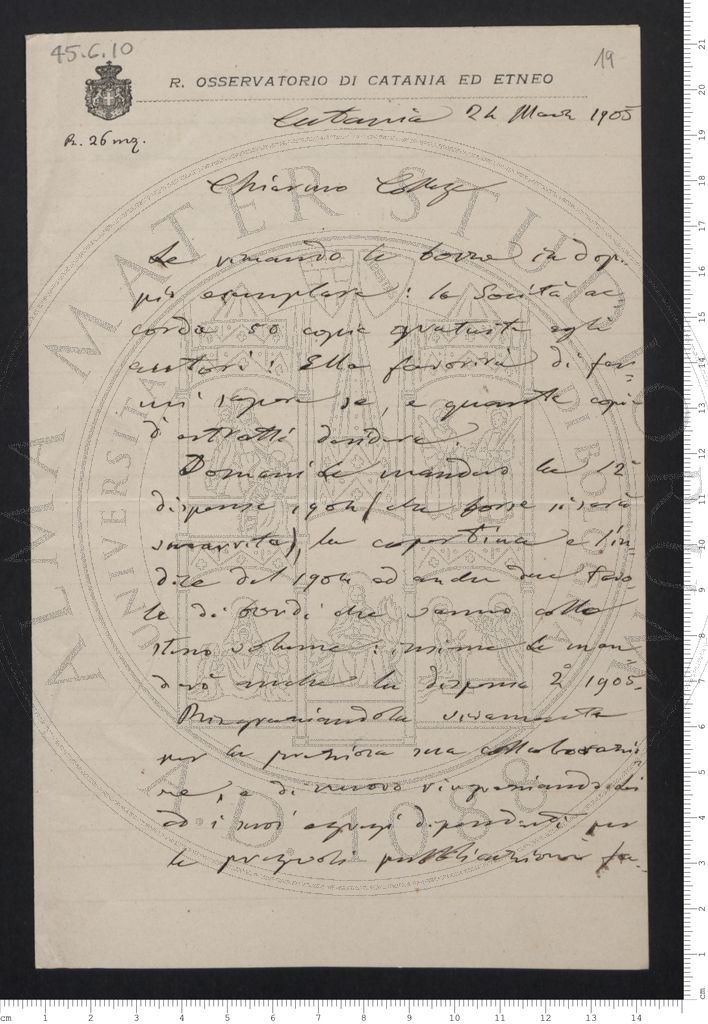 45.C.10
19
R. OSSERVATORIO DI CATANIA ED ETNEO
Catania 24 Marzo 1905
R. 26 mz.
Chiarmo Collega
Le rimando le bozze in dop-
pio esemplare: la Società ac-
corda 50 copie gratuite agli
autori: Ella favorirà di far-
mi sapere se, e quante copie
d'estratti desidera.
Domani Le manderò la 12ª
dispensa 1904 (che forse si sarà
smarrita), la copertina e l'in-
dice del 1904 ed anche due tavo-
le di bordi che vanno collo
stesso volume: insieme Le man-
derò anche la dispensa 2ª 1905.
Ringraziandola vivamente
per la preziosa sua collaborazio-
ne, e di nuovo ringraziando Lei
ed i suoi egregi dipendenti per
le pregevoli pubblicazioni fa-
ALMA MATER STUDIORUM
UNIVERSITÀ DI BOLOGNA
A.D. 1088